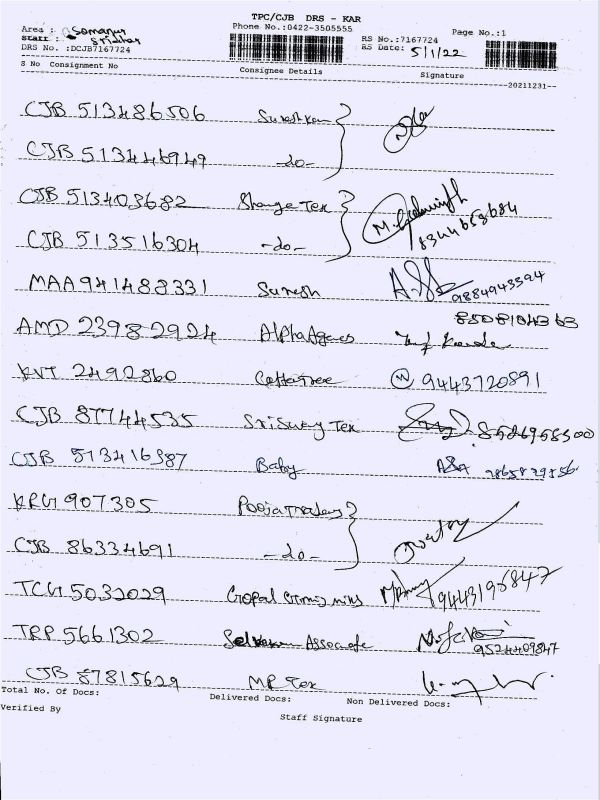 TPC/CJB DRS - KAR
Phone No.:0422-3505555
Area : Somanur
Staff : Sridhar
DRS No. :DCJB7167724
RS No.:7167724
RS Date: 5/1/22
Page No.:1
S No Consignment No Consignee Details Signature
20211231--
CJB 513486506 Sureshkan
CJB 513446949 -do-
CJB 513403682 Shange Tex 8344658684
CJB 513516304 -do-
MAA941488331 Suresh 9884943594
AMD 23982924 Alpha Agencs 8508104363
KVT 2492860 9443720891
CJB 87744535 Tex
CJB 513416387 Baby
KRG 907305 Pooja Traders
CJB 86334691 -do-
TCG 5032029 Gopal mills 9443195847
TRP 5661302 Selvam Associate 9524409847
CJB 87815629 MP Tex
Total No. Of Docs: Delivered Docs: Non Delivered Docs:
Verified By Staff Signature